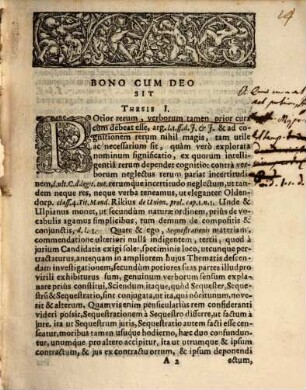 BONO CUM DEO
SIT
THESIS I.
POtior rerum, verborum tamen prior cura
cùm debeat esse, arg. l.7. ff. d. J. & J. & ad co-
gnitionem rerum nihil magis, tam utile
ac necessarium sit, quàm verò explorata
nominum significatio, ex quorum intelli-
gentiâ rerum dependet cognitio: contra ex
verborum neglectus rerum pariat incertitudi-
nem, rerumque incertitudo neglectum, ut
tandem neque res, neque verba teneamus, ut eleganter Olden-
dorp. Rikius de Union. prol. Unde &
Ulpianus monet, ut secundum naturæ ordinem, prius de
vocabulis agamus simplicibus, tum demum de compositis &
conjunctis, d. l. 1. Quare & ego, Sequestrationis materiam,
commodatione ulteriori nulli indigentem, tertii, quod à
jurium Candidatis exigi solet, speciminis loco, utcunque per-
tractaturus, antequam in ampliorem hujus Thematis descen-
dam investigationem, secundum potiores suas partes illud pro
virili exhibiturus sum, genuinum verborum sensum explana-
re prius constitui, Sciendum itaque, quòd Sequester, Seque-
strus & Sequestratio, sint conjugata, ut ita, qui nôrit unum, nove-
rit & alterum: Quamvis enim pensiculatius rem consideranti
videri possit, Sequestrationem à Sequestro differre, ut factum à
jure, ita ut Sequestrum juris, Sequestratio autem facti esse cen-
seatur, moribus tamen usuque hodierno, hæc duo confundun-
tur, unumque pro altero accipitur, ita ut utrumque & ipsum
contractum, & jus ex contractu ortum, & ipsum deponendi
A 2 actum,